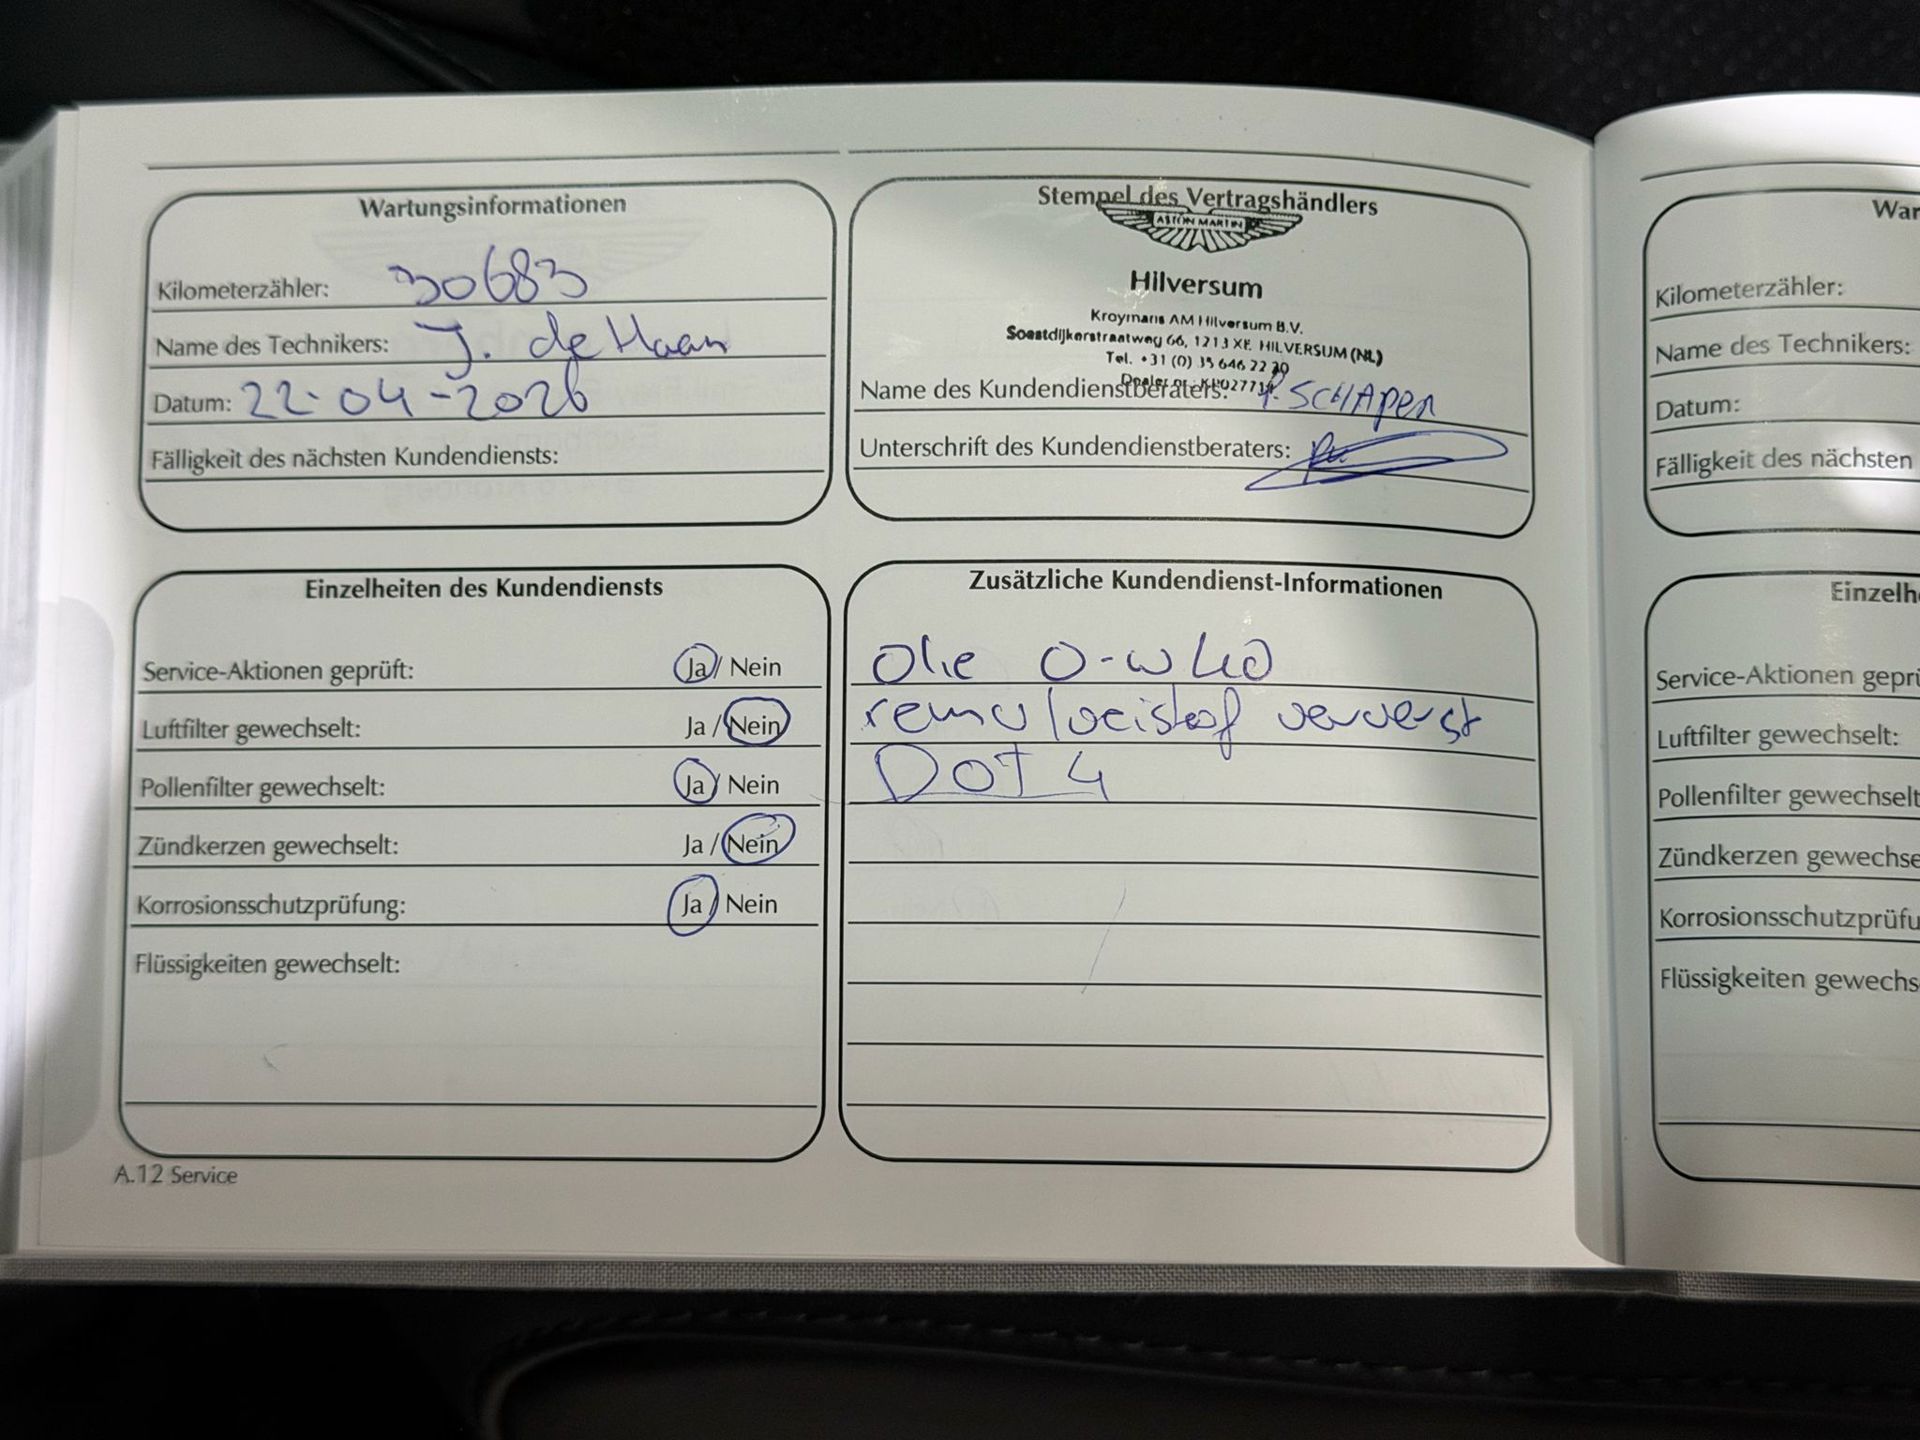 Wartungsinformationen
Kilometerzähler: 30683
Name des Technikers: J. de Haan
Datum: 22-04-2026
Fälligkeit des nächsten Kundendiensts:
Stempel des Vertragshändlers
ASTON MARTIN
Hilversum
Kroymans AM Hilversum B.V.
Soestdijkerstraatweg 66, 1213 XE HILVERSUM (NL)
Tel. +31 (0) 35 646 22 20
Dealer nr.
Name des Kundendienstberaters: P. SCHAPER
Unterschrift des Kundendienstberaters:
Einzelheiten des Kundendiensts
Service-Aktionen geprüft: Ja / Nein
Luftfilter gewechselt: Ja / Nein
Pollenfilter gewechselt: Ja / Nein
Zündkerzen gewechselt: Ja / Nein
Korrosionsschutzprüfung: Ja / Nein
Flüssigkeiten gewechselt:
Zusätzliche Kundendienst-Informationen
Olie 0-w40
ververst
DOT 4
A.12 Service
War
Kilometerzähler:
Name des Technikers:
Datum:
Fälligkeit des nächsten
Einzelh
Service-Aktionen geprü
Luftfilter gewechselt:
Pollenfilter gewechselt
Zündkerzen gewechse
Korrosionsschutzprüfu
Flüssigkeiten gewechs